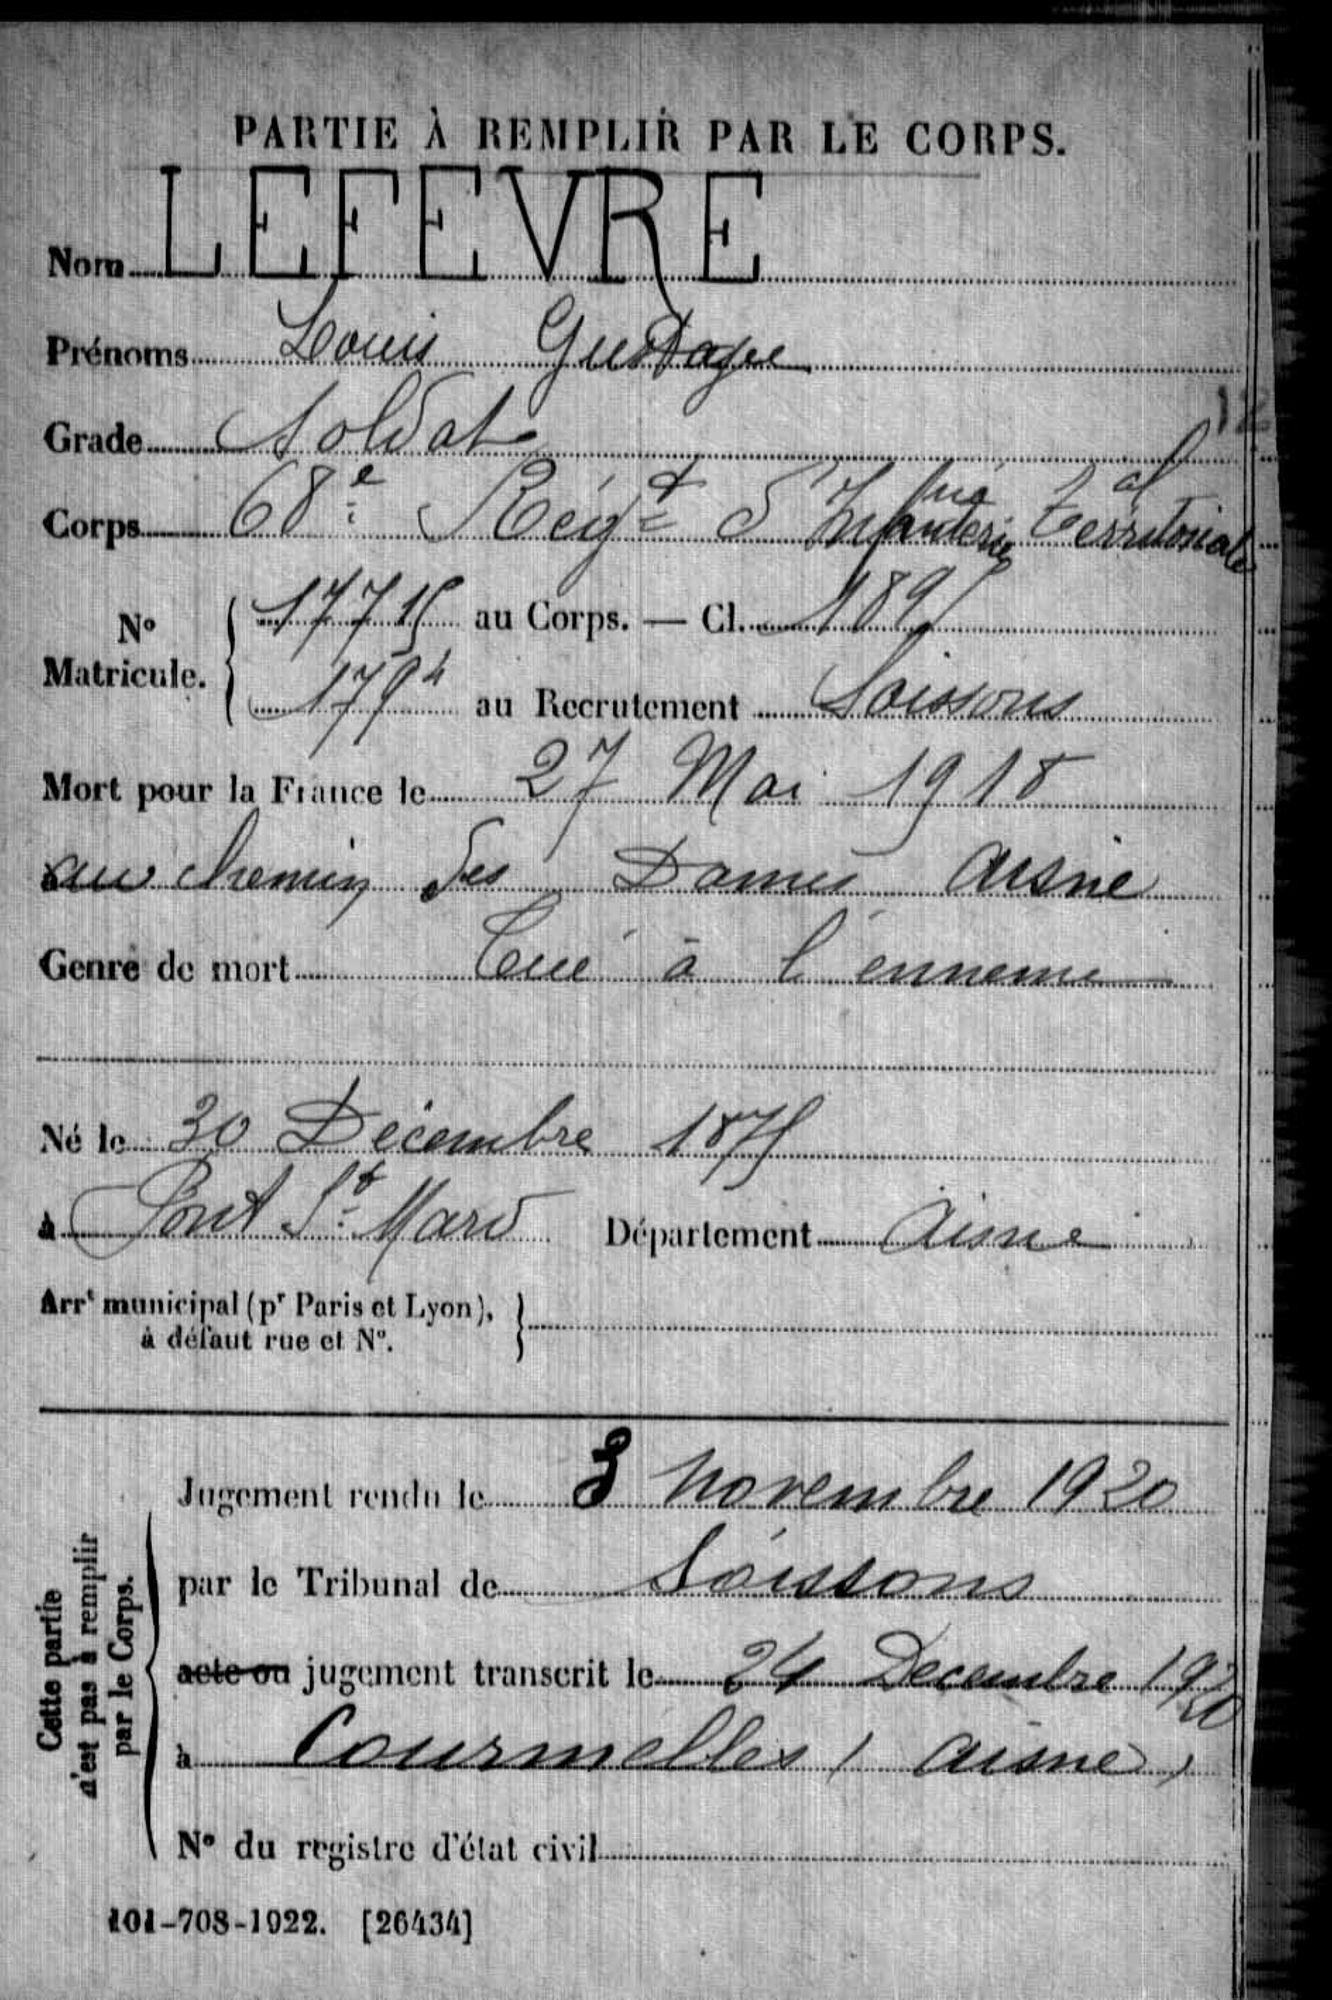 PARTIE À REMPLIR PAR LE CORPS.
Nom LEFEVRE
Prénoms Louis Gustave
Grade Soldat
Corps 68e Régt d'Infanterie Territoriale
No Matricule. 17715 au Corps. — Cl. 1895
1794 au Recrutement Soissons
Mort pour la France le 27 Mai 1918
au chemin des Dames Aisne
Genre de mort Tué à l'ennemi
Né le 30 Décembre 1875
à Pont St Mard Département Aisne
Arrt municipal (pr Paris et Lyon),
à défaut rue et No.
Cette partie
n'est pas à remplir
par le Corps.
Jugement rendu le 3 Novembre 1920
par le Tribunal de Soissons
acte ou jugement transcrit le 24 Decembre 1920
à Courmelles (Aisne)
No du registre d'état civil
101-708-1922. [26434]